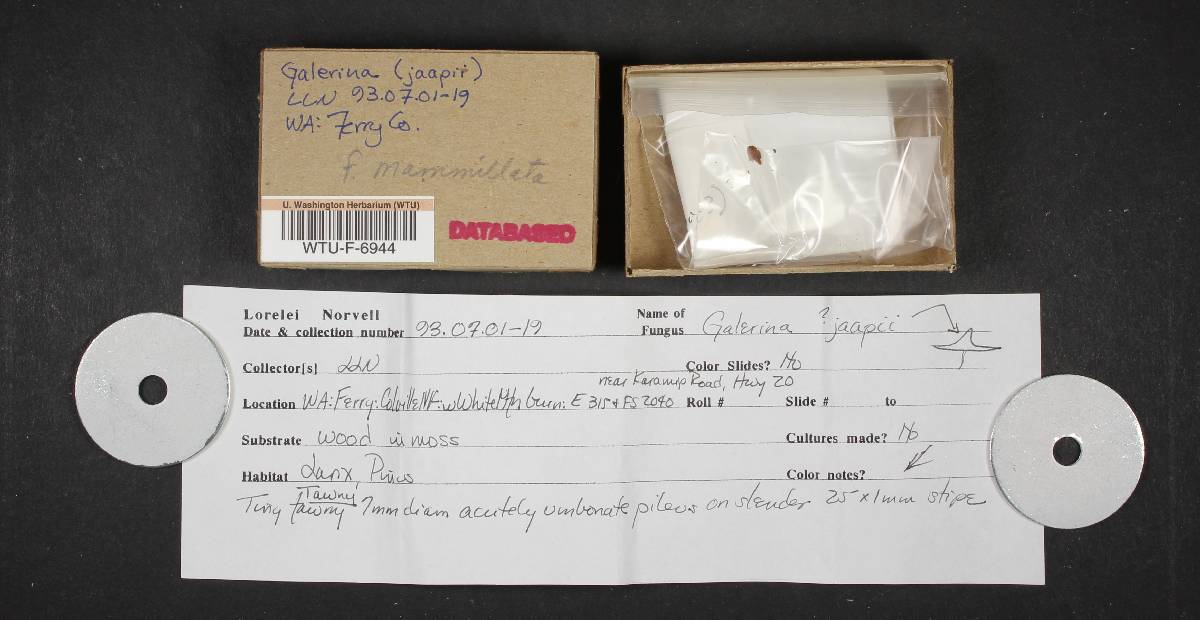 Galerina (jaapii)
LLN 93.07.01-19
WA: Ferry Co.
f. mammillata
U. Washington Herbarium (WTU)
WTU-F-6944
DATABASED
Lorelei Norvell
Date & collection number 93.07.01-19
Name of Fungus Galerina ? jaapii
Collector[s] LLN
Color Slides? No
near Karamip Road, Hwy 20
Location WA: Ferry: Colville NF: w White Mtn burn: E 315 & FS 2040 Roll # Slide # to
Substrate wood in moss
Cultures made? No
Habitat Larix, Pinus
Color notes?
Tawny
Tiny tawny 7mm diam acutely umbonate pileus on slender 25 x 1mm stipe